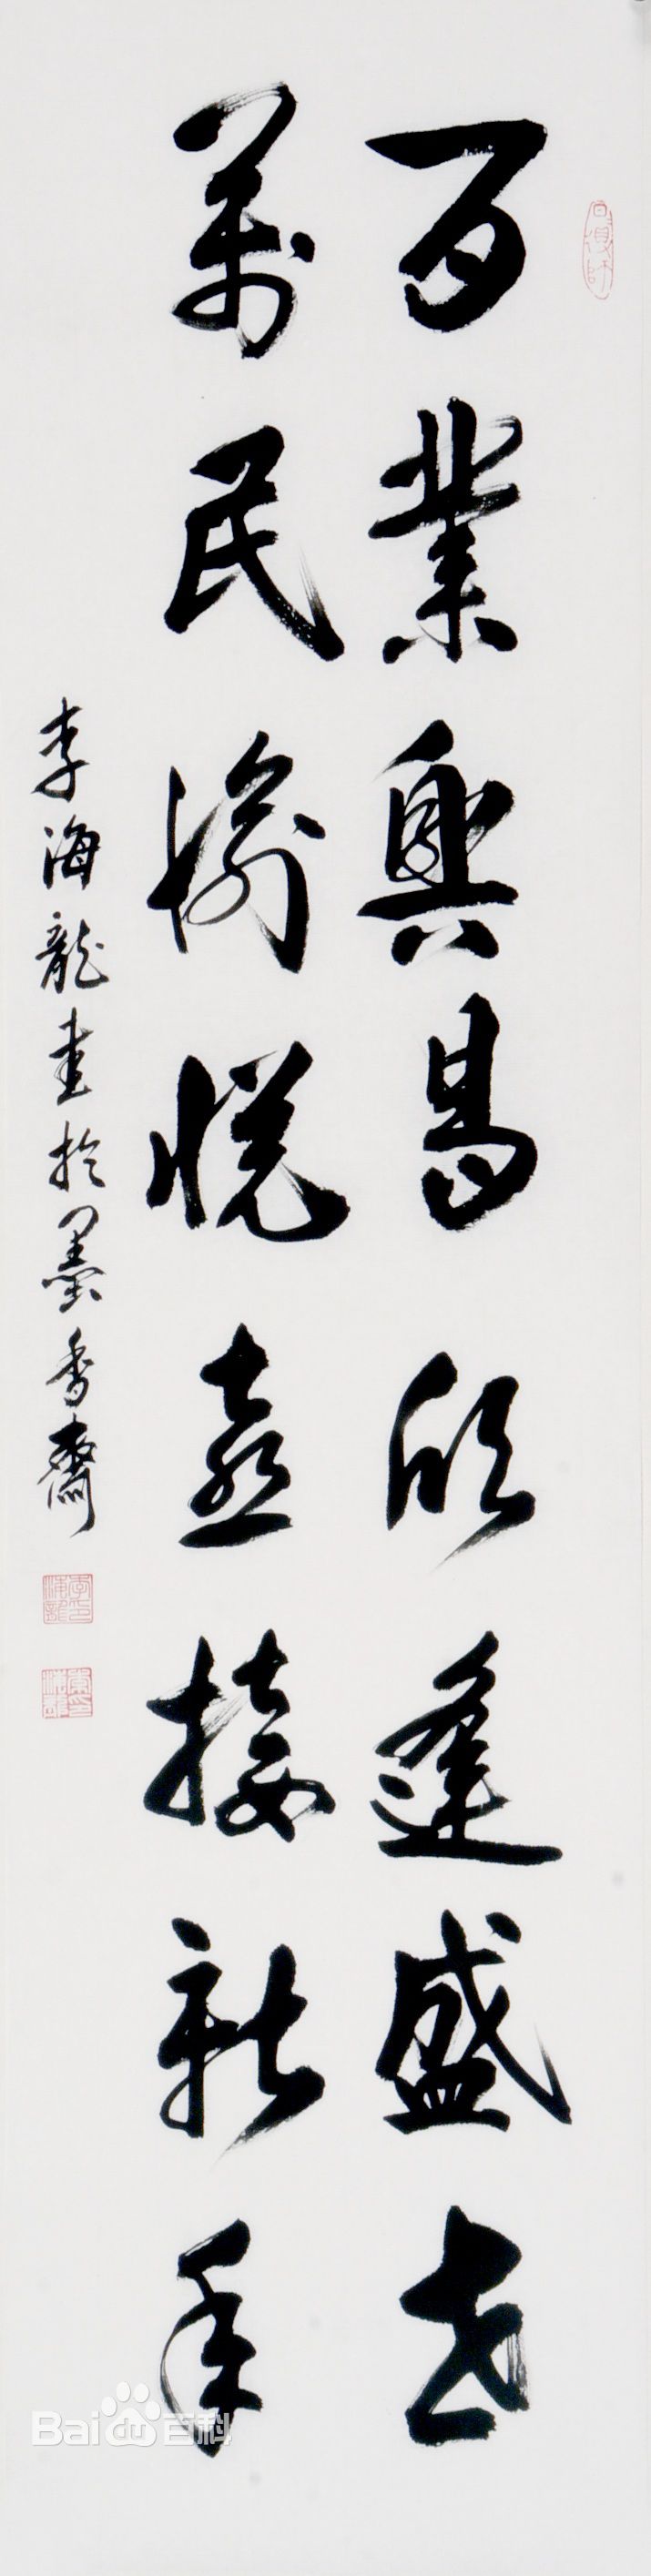 百業興昌欣逢盛世
萬民愉悅喜接新年
李海龍書於墨香齋
Baidu百科